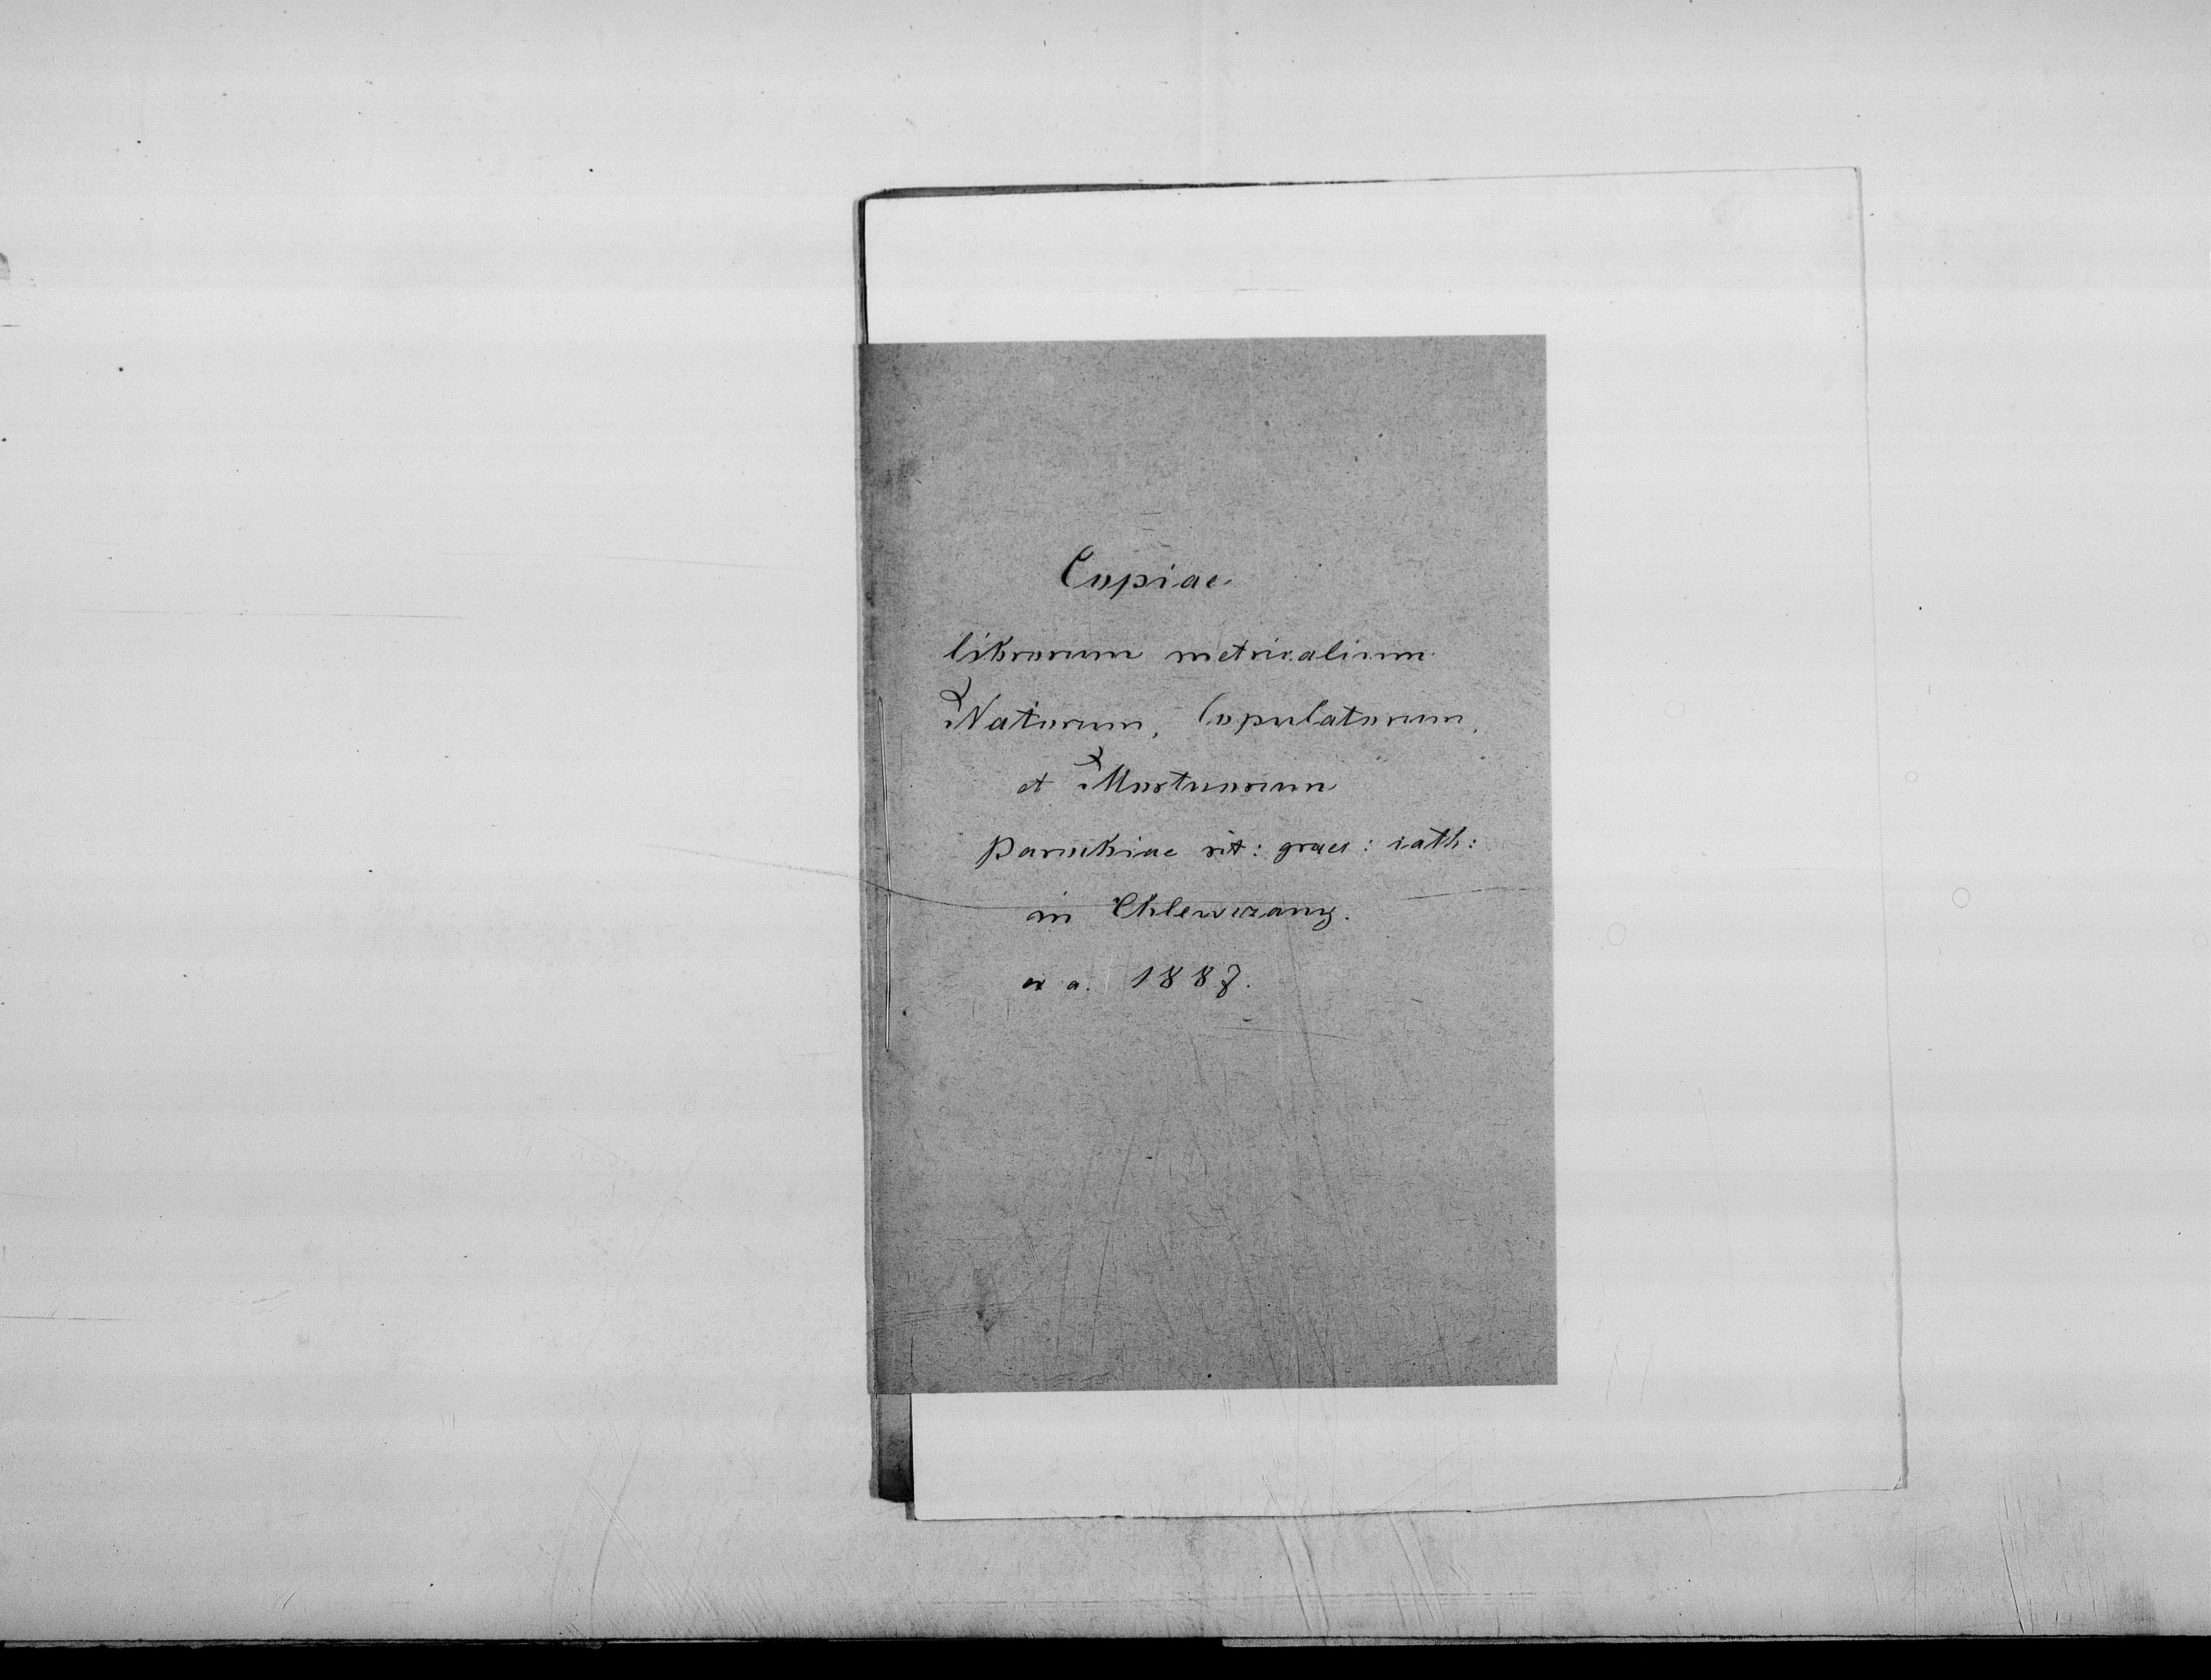 Copiae
librorum metricalium
Natorum, Copulatorum,
et Mortuorum
Parochiae rit: graec: cath:
in Chlewczany.
ex a. 1887.